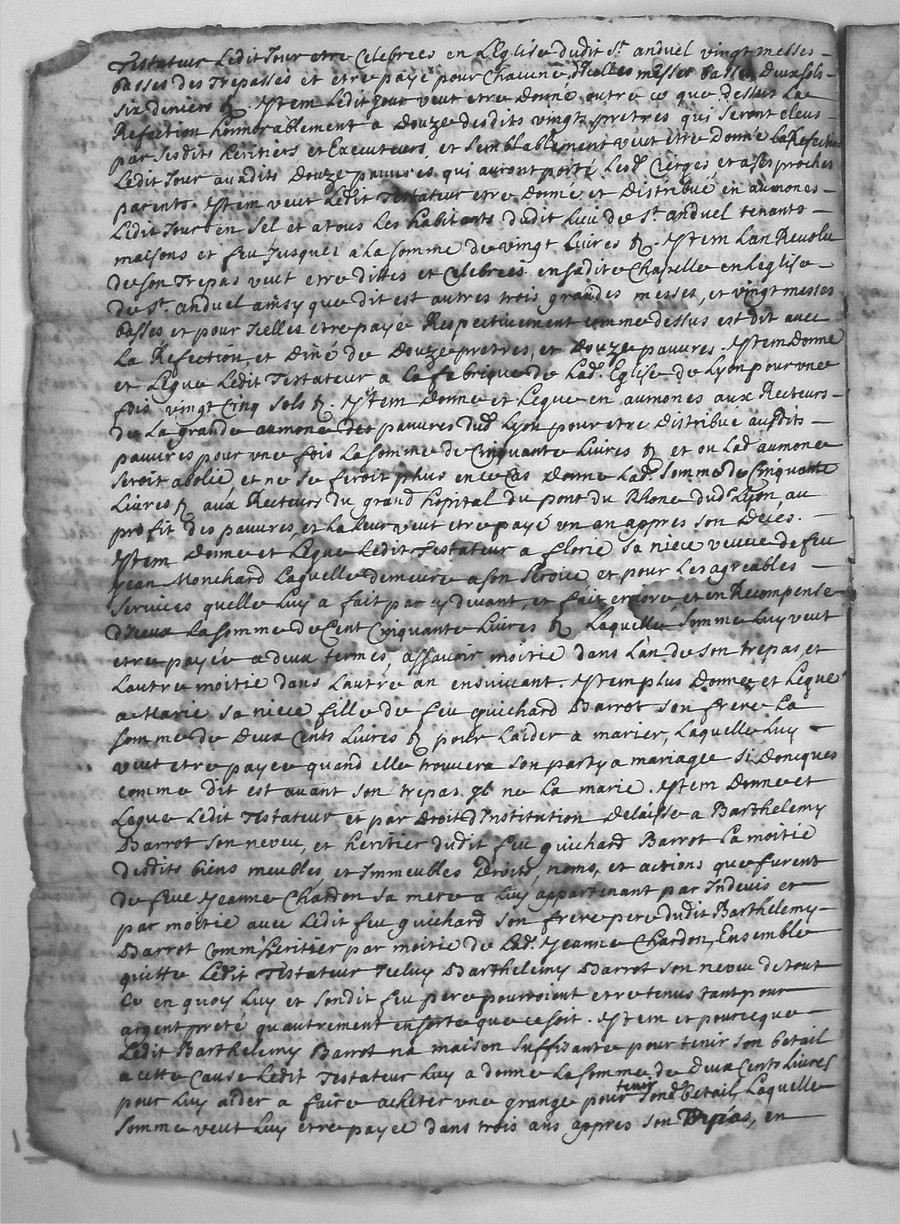 Testateur Ledit Jour etre Celebrees en L'Eglise dudit St. anduel vingt messes -
basses des Trepasses et etre payé pour Chacune d'Icelles messes basses Deux sols -
six deniers tz. Jtem Ledit Jour veut etre Donné outre ce que dessus La
Refection honnorablement a Douze desdits vingt pretres qui seront eleus -
par sesdits heritiers et Executeurs, et semblablement veut etre Donné La Refection
Ledit Jour auxdits Douze pauvres qui auront porté Lesd. Cierges, et a ses proches
parents. Jtem veut Ledit Testateur etre Donné et Distribué en aumones -
Ledit Jour en sel et a tous Les habitants dudit Lieu de St. anduel tenants -
maisons et feu Jusques a la somme de vingt Livres tz. Jtem L'an Revolu
de son Trepas veut etre dittes et Celebrees en sadite Chapelle en L'eglise -
de St. anduel ainsy que dit est autres trois grandes messes, et vingt messes
basses et pour Icelles etre payé Respectivement comme dessus est dit avec
La Refection et Diné de Douze pretres, et Douze pauvres. Jtem Donne
et Legue Ledit Testateur a La fabrique de Lad. Eglise de Lyon pour une
fois vingt Cinq sols tz. Jtem Donne et Legue en aumones aux Recteurs -
de La grande aumone des pauvres dud. Lyon pour etre Distribué ausdits -
pauvres pour une fois La somme de Cinquante Livres tz et ou Lad. aumone
seroit abolie et ne se feroit plus en ce Cas Donne Lad. somme de Cinquante
Livres tz aux Recteurs du grand hopital du pont du Rhone dud. Lyon au
profit des pauvres, et La Leur veut etre payé un an appres son Decés. -
Jtem Donne et Legue Ledit Testateur a florie sa niece veuve de feu
Jean Monchard Laquelle demeure a son service et pour Les agreables -
services quelle Luy a fait par cy devant, et fait encore, et en Recompense
d'Iceux La somme de Cent Cinquante Livres tz Laquelle somme Luy veut
etre payée a deux termes, assavoir moitié dans L'an de son trepas, et
Lautre moitié dans Lautre an ensuivant. Jtem plus Donne et Legue
a Marie sa niece fille de feu guichard Barrot son frere La
somme de Deux Cents Livres tz pour L'aider a marier, Laquelle Luy -
veut etre payée quand elle trouvera son party a mariage si Doncques
comme dit est avant son trepas Jl ne La marie. Jtem Donne et
Legue Ledit Testateur et par Droit d'Institution Delaisse a Barthelemy
Barrot son neveu, et heritier dudit feu guichard Barrot La moitié
desdits biens meubles, et Immeubles Droits, noms, et actions que furent
de feue Jeanne Chardon sa mere a Luy appartenant par Indevis et
par moitié avec Ledit feu guichard son frere pere dudit Barthelemy -
Barrot Comm'heritier par moitié de Lad. Jeanne Chardon, Ensemble
quitte Ledit Testateur Iceluy Barthelemy Barrot son neveu de tout
Ce en quoy Luy et sondit feu pere pourroient etre tenus tant pour
argent preté qu'autrement en sorte que ce soit. Jtem et pource que -
Ledit Barthelemy Barrot n'a maison suffisante pour tenir son betail
a cette Cause Ledit Testateur Luy a donné La somme de Deux Cents Livres
pour Luy aider a faire acheter une grange pour tenir sond. betail, Laquelle
somme veut Luy etre payée dans trois ans appres son Trépas, en